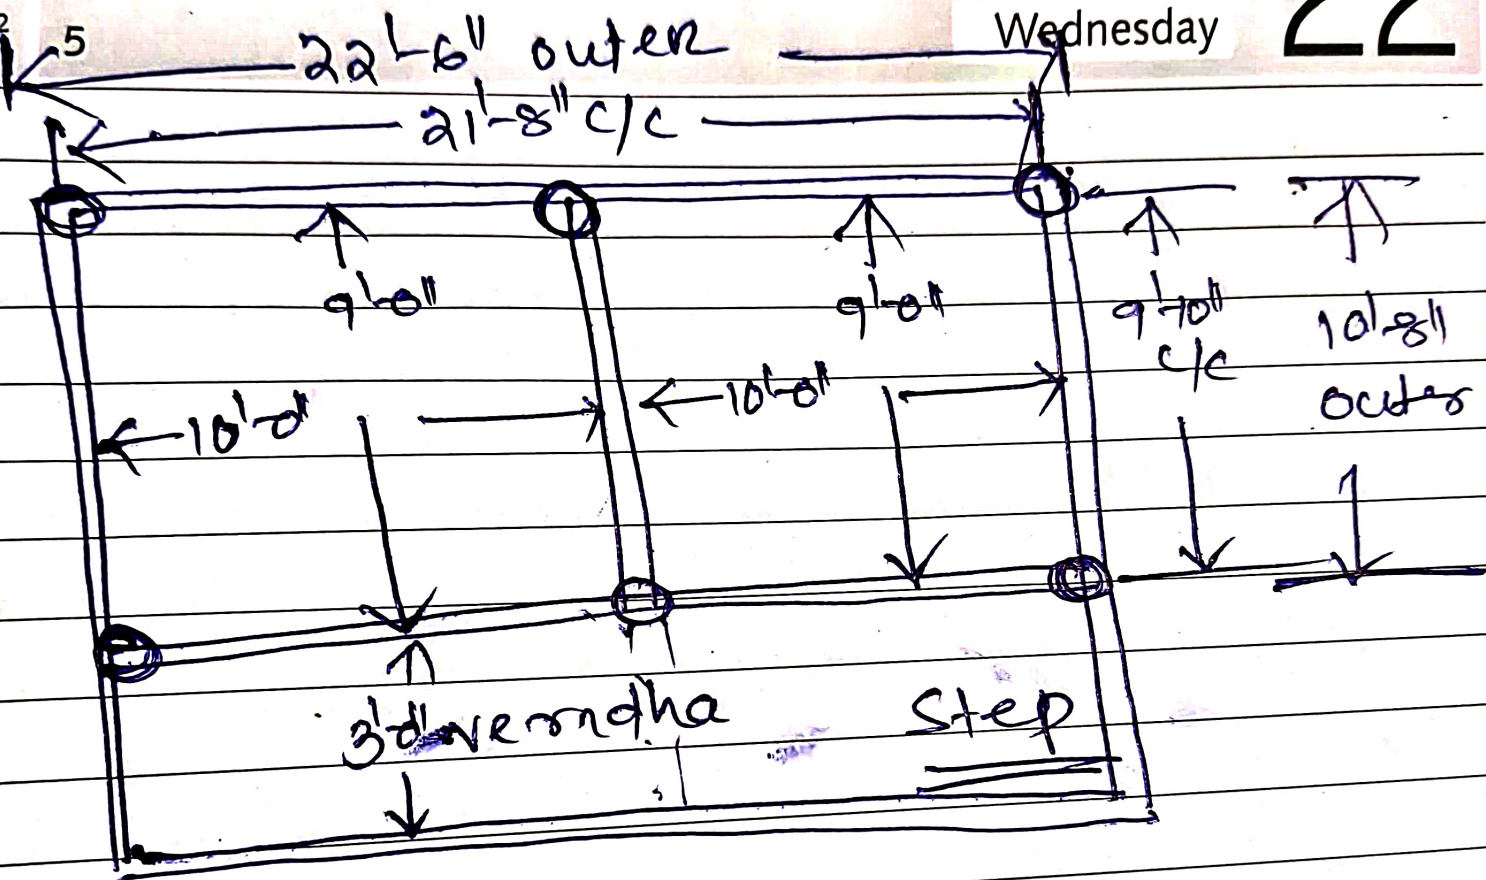 5
Wednesday 22
22'-6" outer
21'-8" c/c
9'-0" 9'-0" 9'-10" 10'-8"
c/c
outer
10'-0" 10'-0"
3'-0" verndha Step